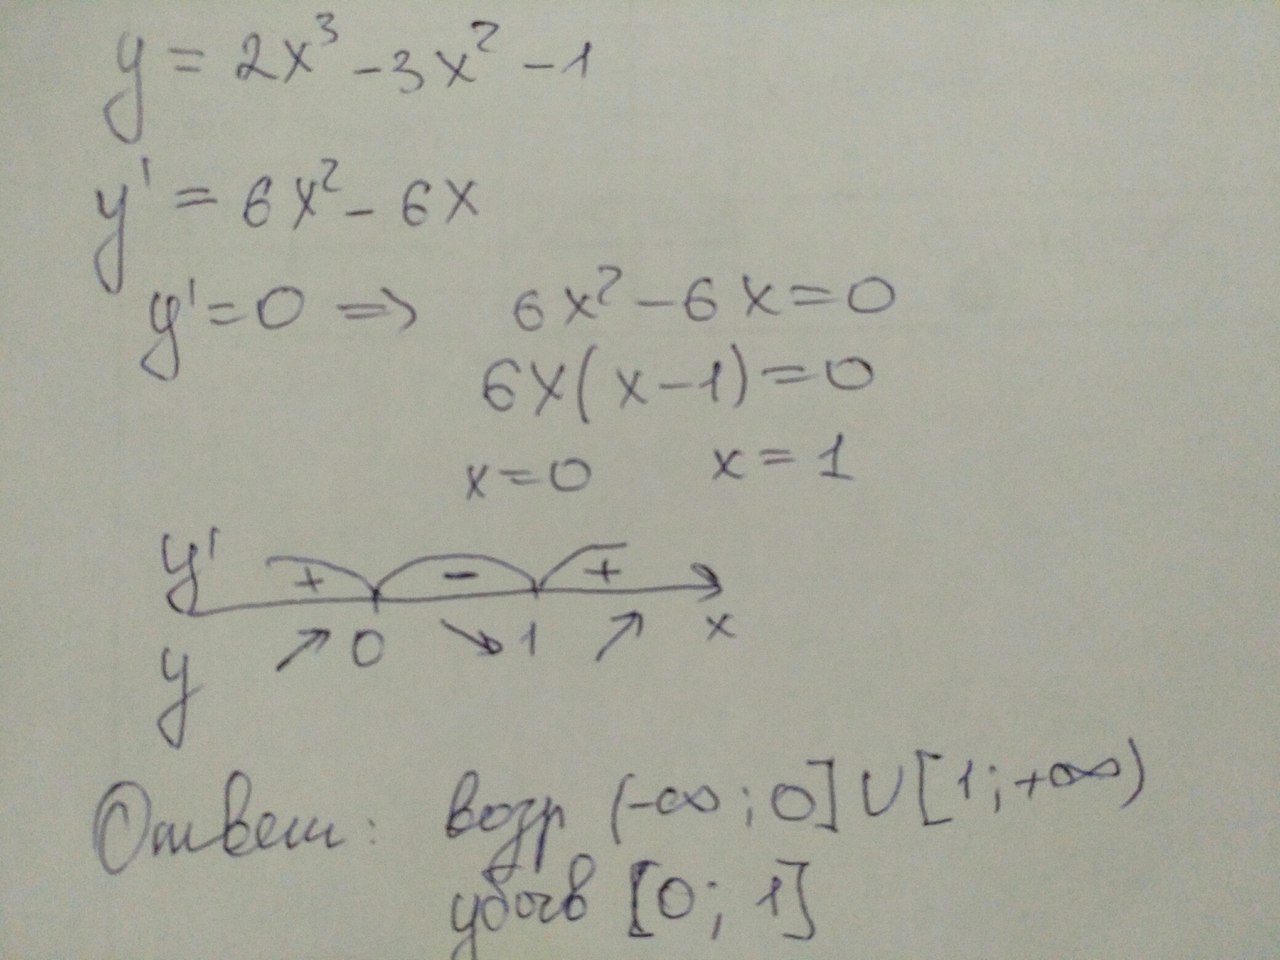 y = 2x³ - 3x² - 1
y' = 6x² - 6x
y' = 0 => 6x² - 6x = 0
6x(x - 1) = 0
x = 0 x = 1
y' + - + 
↗ 0 ↘ 1 ↗ x
y
Ответ: возр (-∞; 0] ∪ [1; +∞)
убыв [0; 1]